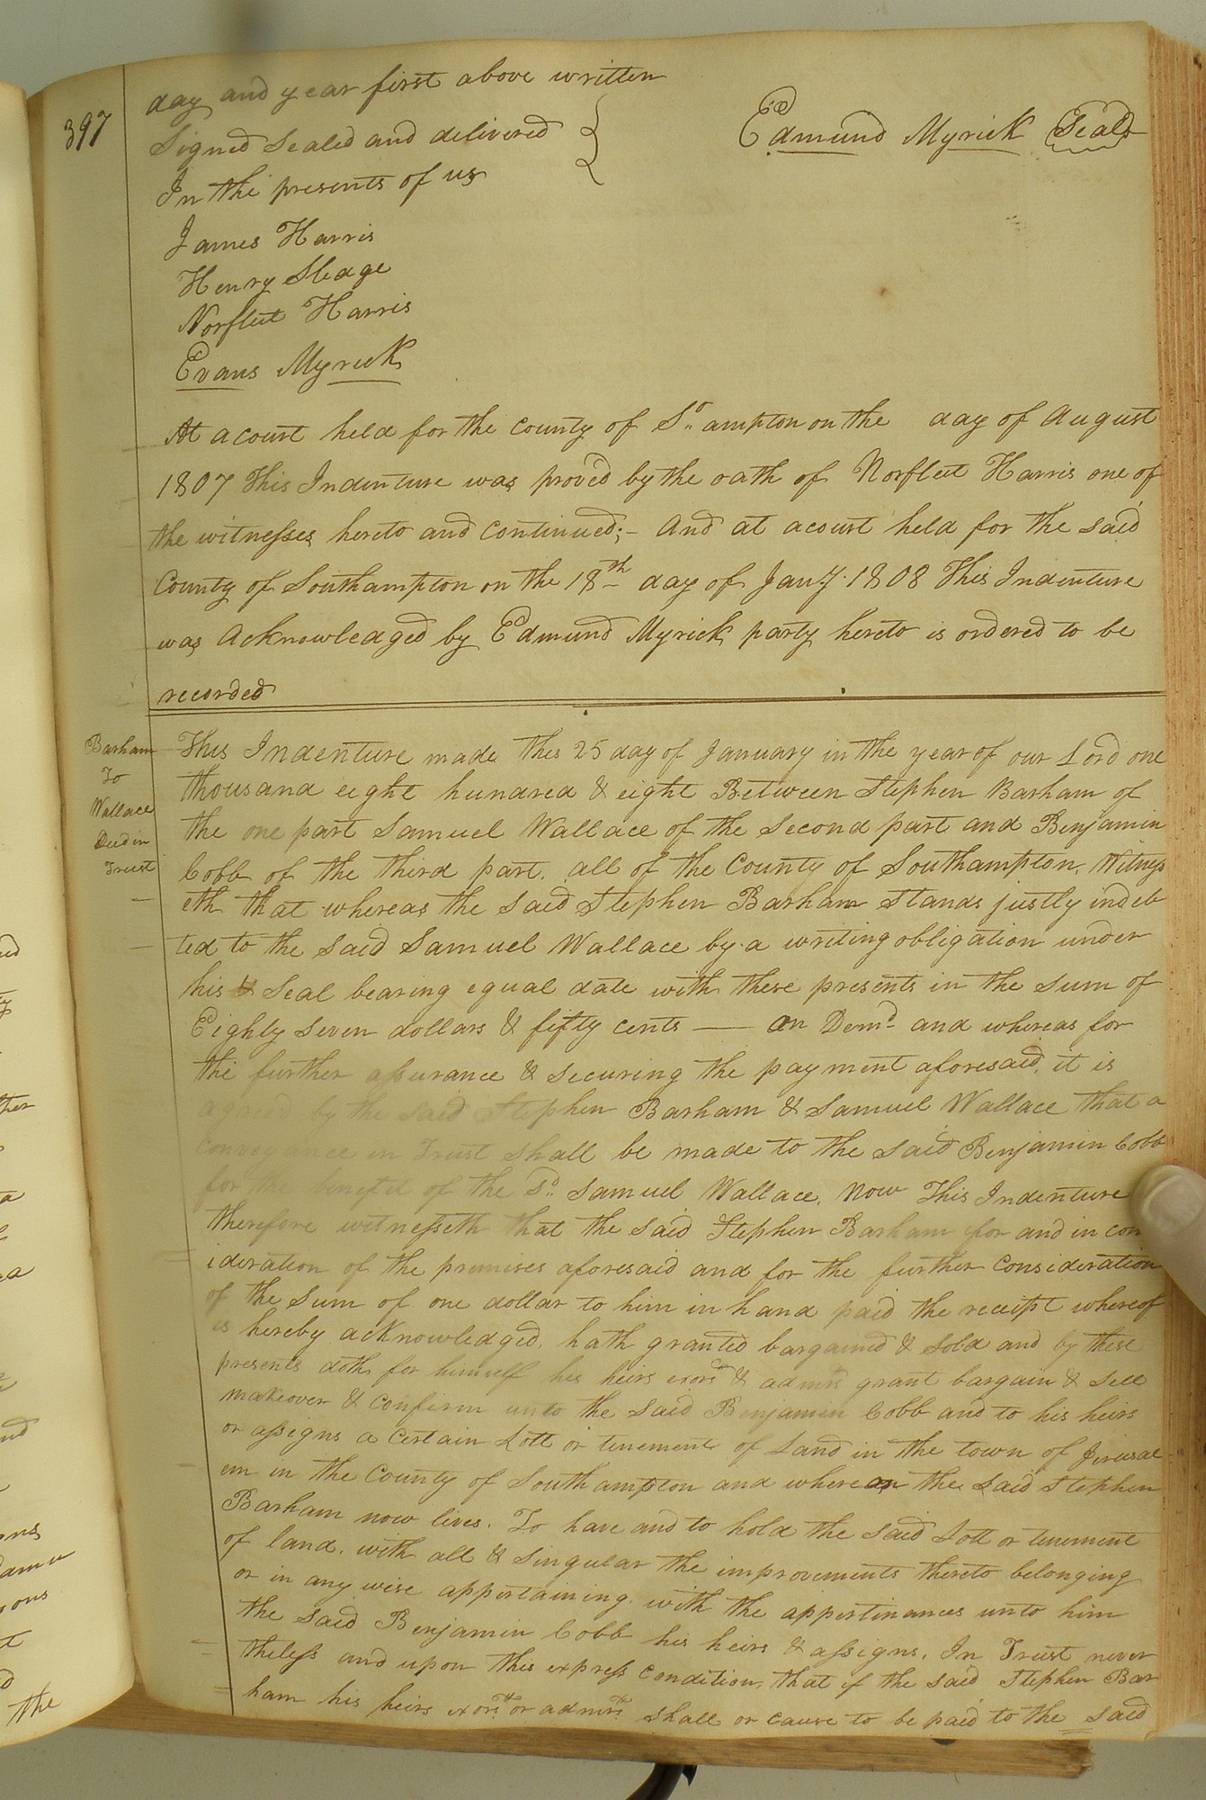 397
day and year first above written
Signed Sealed and delivered
In the presents of us
Edmund Myrick Seal
James Harris
Henry Sledge
Norfleet Harris
Evans Myrick
At a court held for the county of So. ampton on the day of August
1807 This Indenture was proved by the oath of Norfleet Harris one of
the witnesses hereto and continued;- And at a court held for the said
County of Southampton on the 18th day of Jany. 1808 This Indenture
was Acknowledged by Edmund Myrick party hereto is ordered to be
recorded
Barham
To
Wallace
Deed in
Trust
This Indenture made this 25 day of January in the year of our Lord one
thousand eight hundred & eight Between Stephen Barham of
the one part Samuel Wallace of the second part and Benjamin
Cobb of the third part. all of the County of Southampton. Witness
eth that whereas the said Stephen Barham Stands justly indeb
ted to the said Samuel Wallace by a writing obligation under
his & Seal bearing equal date with these presents in the sum of
Eighty seven dollars & fifty cents — on Demd. and whereas for
the further assurance & securing the payment aforesaid, it is
agreed by the said Stephen Barham & Samuel Wallace that a
conveyance in Trust shall be made to the said Benjamin Cobb
for the benefit of the sd. Samuel Wallace. Now This Indenture
therefore witnesseth that the said Stephen Barham for and in con
ideration of the premises aforesaid and for the further consideration
of the sum of one dollar to him in hand paid the receipt whereof
is hereby acknowledged. hath granted bargained & sold and by these
presents doth for himself his heirs exors. & admrs. grant bargain & sell
makeover & confirm unto the said Benjamin Cobb and to his heirs
or assigns a certain Lott or tenement of Land in the town of Jerusal
em in the County of Southampton and whereon the said Stephen
Barham now lives. To have and to hold the said Lott or tenement
of land. with all & singular the improvements thereto belonging
or in any wise appertaining. with the appertinances unto him
the said Benjamin Cobb his heirs & assigns. In Trust never
theless and upon this express condition, that if the said Stephen Bar
ham his heirs exors. or admrs. shall or cause to be paid to the said